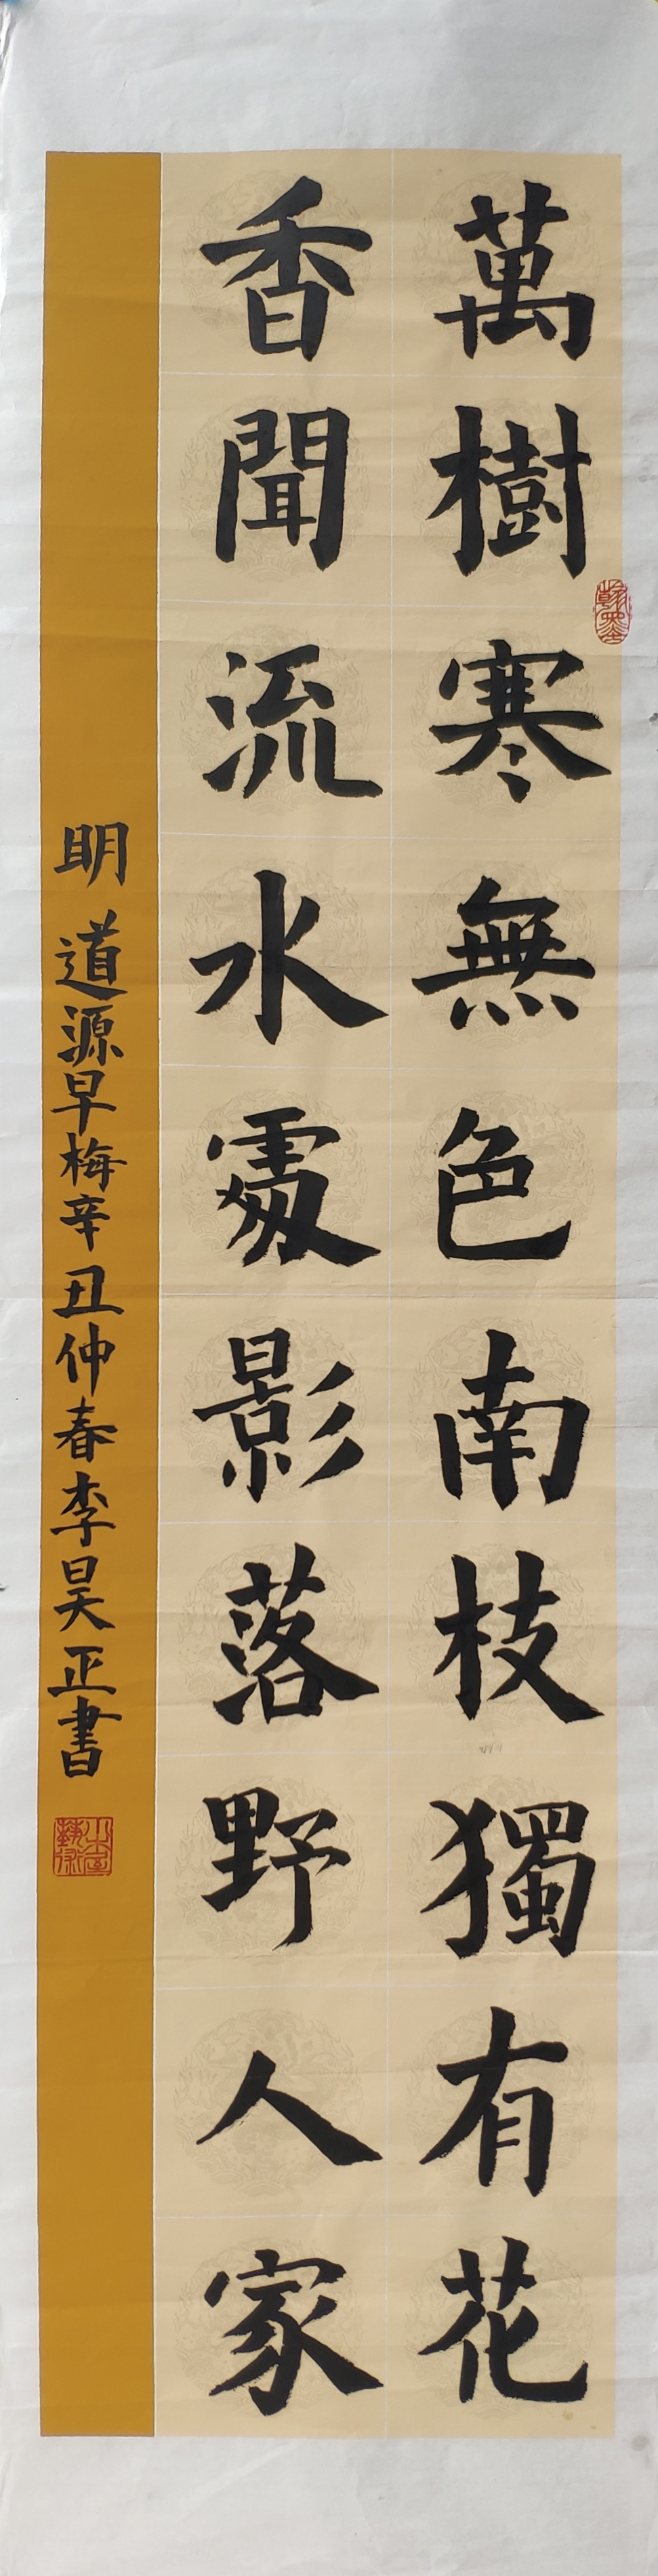 萬樹寒無色南枝獨有花
香聞流水處影落野人家
明 道源早梅辛丑仲春李昊正書
翰墨